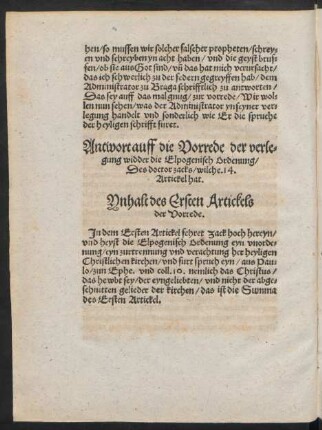 hen/so mussen wir solcher falscher propheten/schrey⸗
en vnd schreyben yn acht haben / vnd die geyst bruf⸗
fen/ob sie aus Got sind/vñ das hat mich verursacht/
das ich schwerlich zu der federn gegryffen hab/dem
Administrator zu Braga schrifftlich zu antworten/
Das sey auff das mal gnug/zur vorrede/Wir wol⸗
len nun sehen/was der Administrator ynseyner ver⸗
legung handelt vnd sonderlich wie Er die spruche
der heyligen schrifft furet.
Antwort auff die Vorrede der verle⸗
gung widder die Elpogenisch Ordenung/
Des doctor zacks/wilche.14.
Artickel hat.
Ynhalt des Ersten Artickels
der Vorrede.
In dem Ersten Artickel feret Zack hoch hereyn/
vnd heyst die Elpogenisch Ordenung eyn vnorde⸗
nung/eyn zurtrennung vnd verachtung der heyligen
Christlichen kirchen/vnd furt spruch eyn/aus Pau⸗
lo/zun Ephe. vnd coll.10. nemlich das Christus/
das hewbt sey/der eyngeliebten/vnd nicht der abge⸗
schnitten gelieder der kirchen/das ist die Summa
des Ersten Artickel.